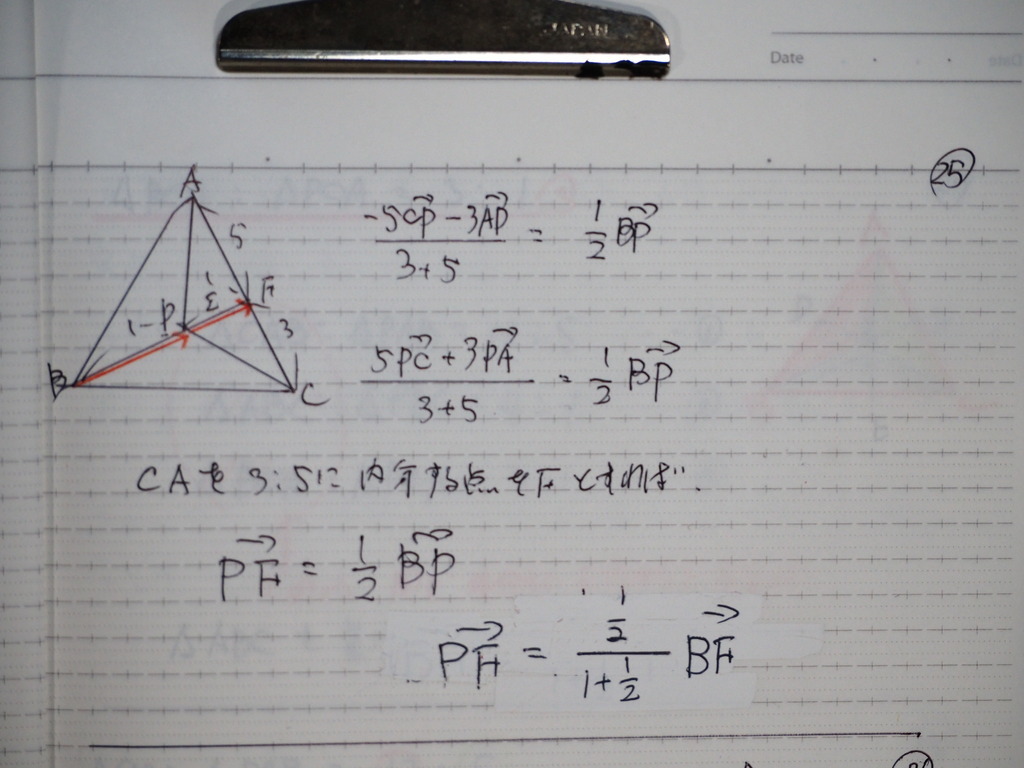 JAPAN
Date
㉕
A
5
1/2
F
1
P
3
B
C
(-5CP→ - 3AP→)/(3+5) = 1/2 BP→
(5PC→ + 3PA→)/(3+5) = 1/2 BP→
CAを3:5に内分する点をFとすれば.
PF→ = 1/2 BP→
PF→ = (1/2)/(1+1/2) BF→